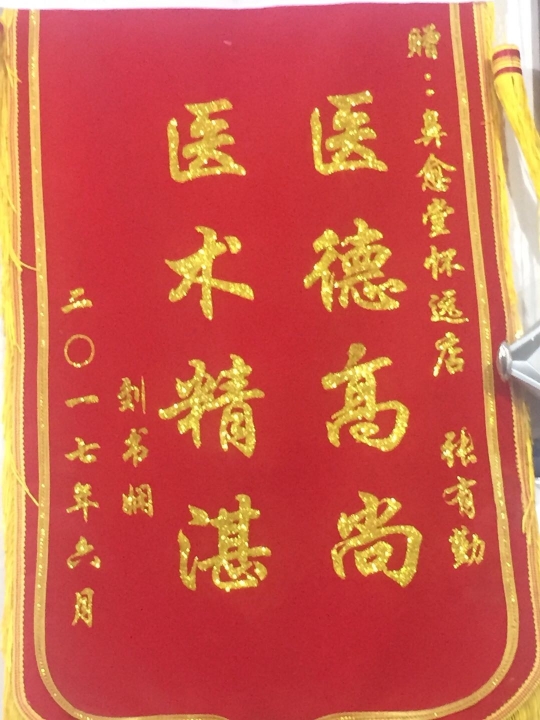 赠：鼻愈堂怀远店 张有勤
医德高尚
医术精湛
刘书娴
二〇一七年六月